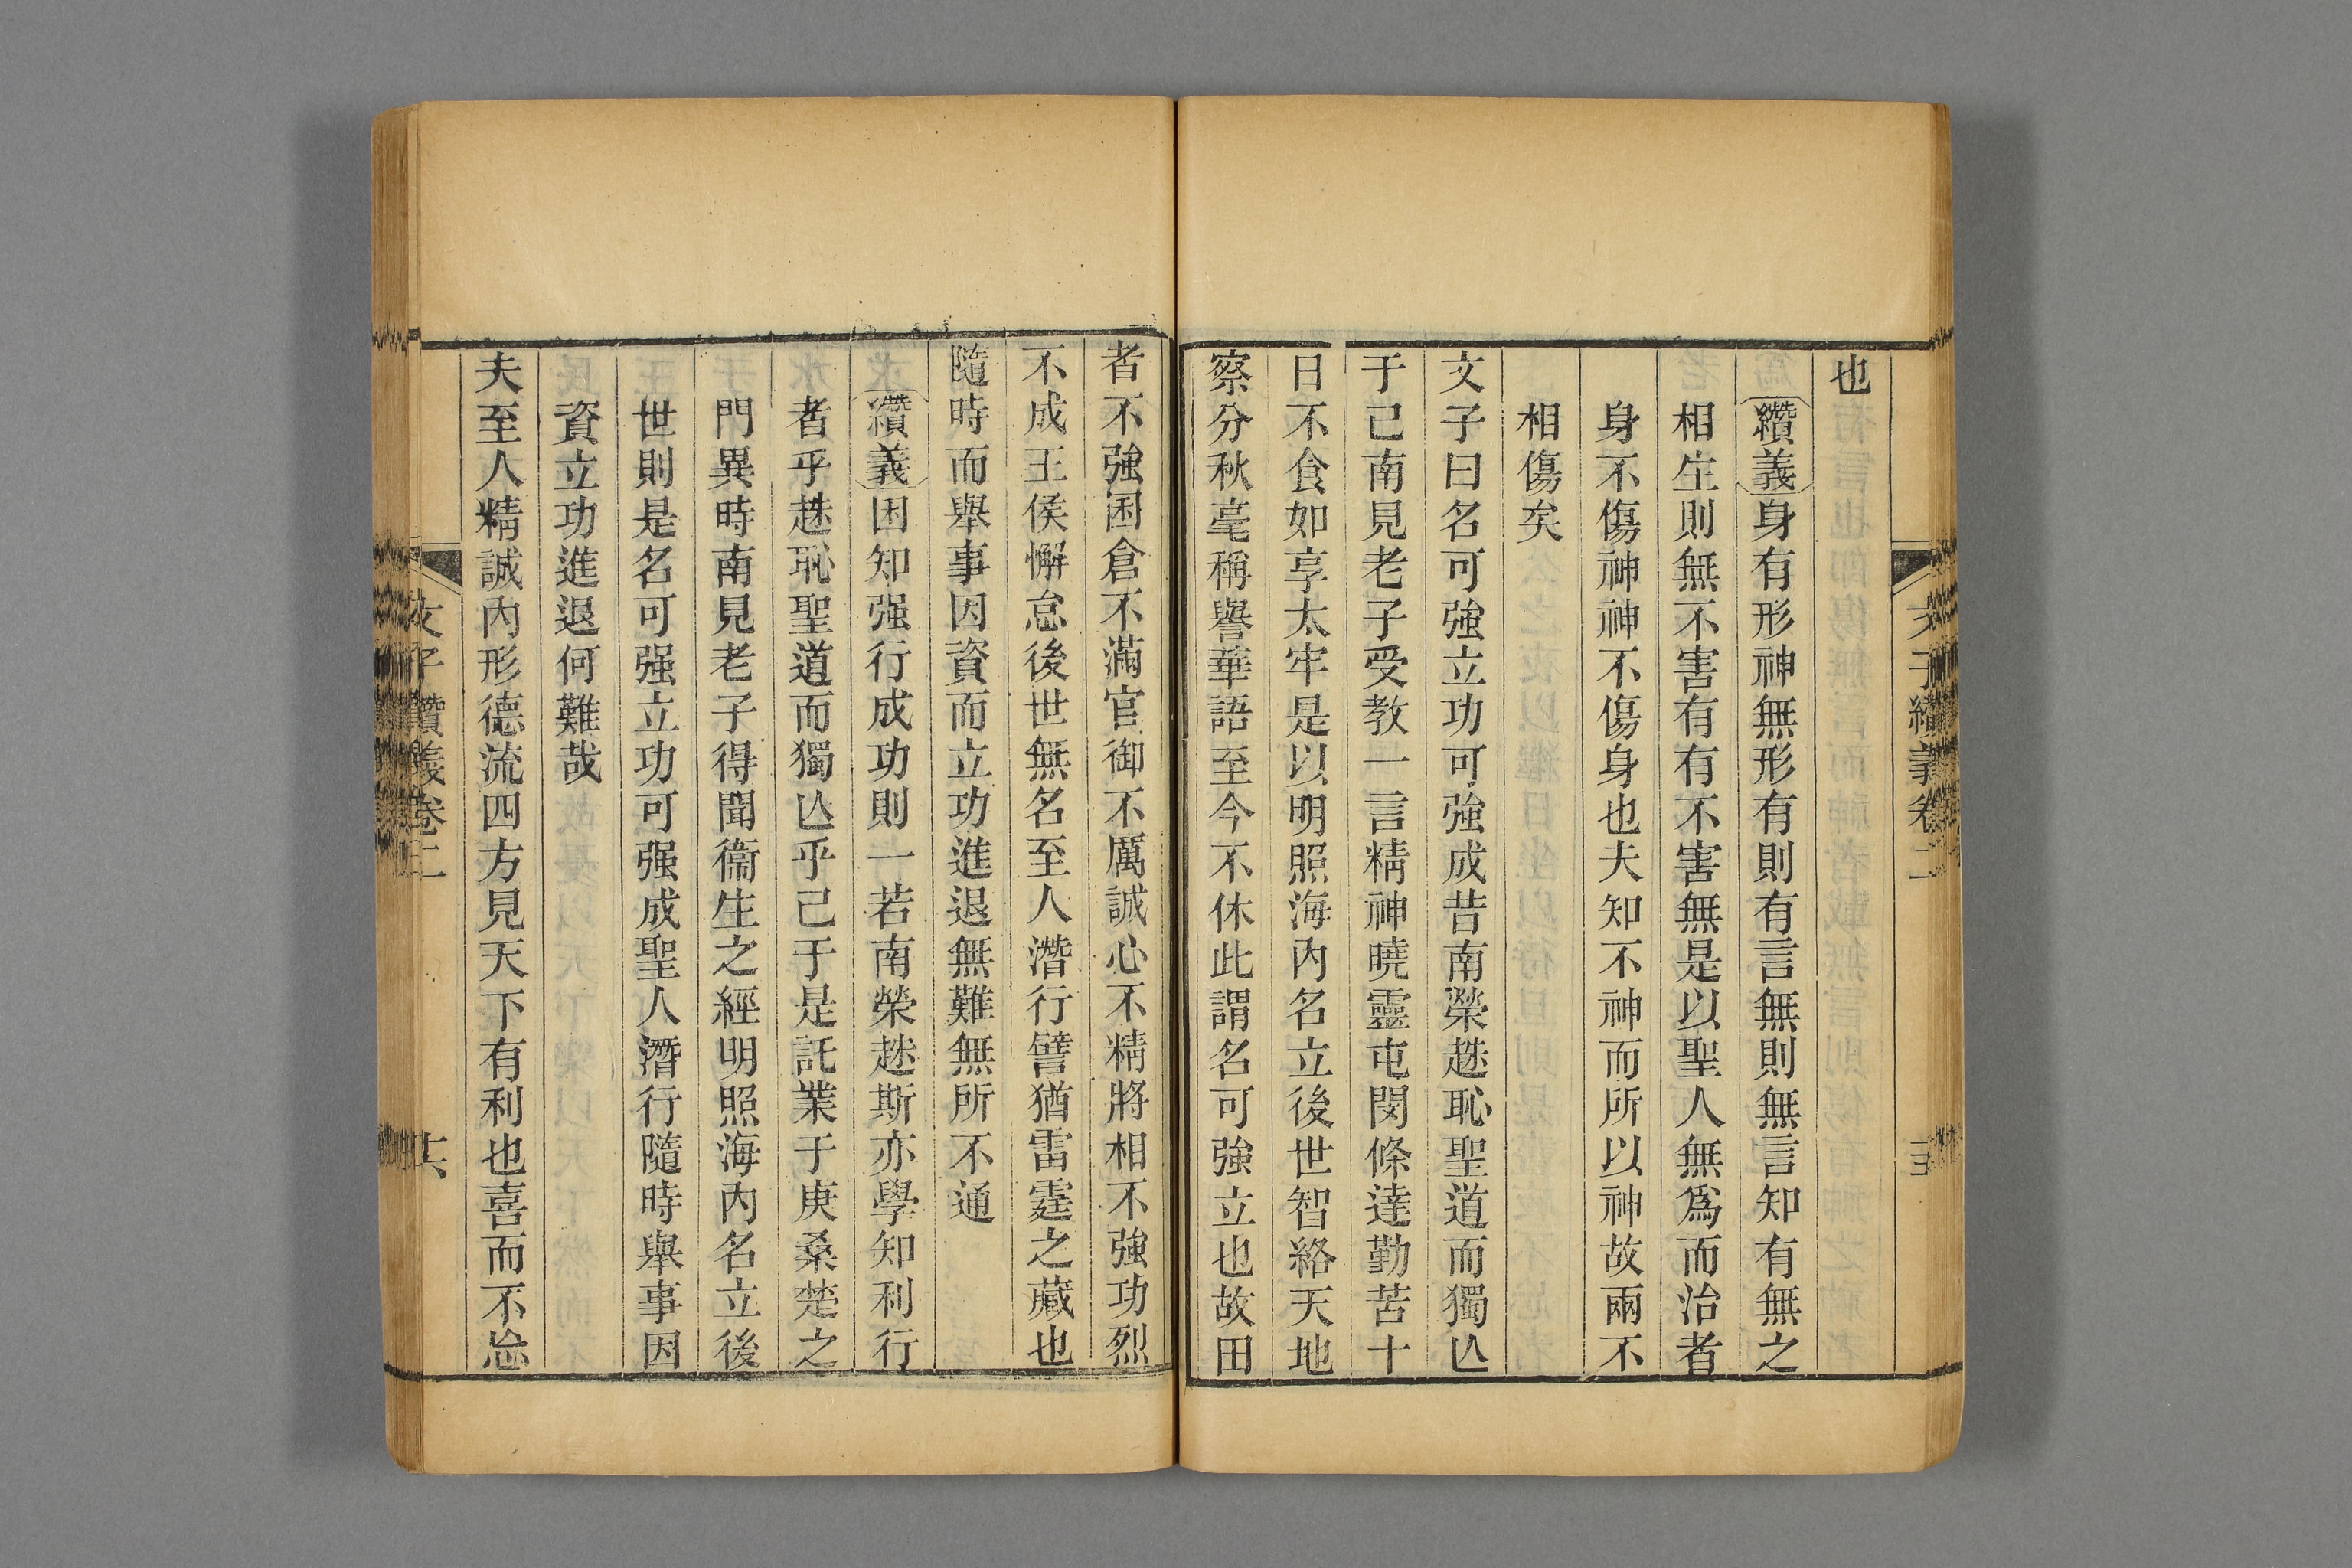 文子纘義卷二
也
纘義身有形神無形有則有言無則無言知有無之
相生則無不害有有不害無是以聖人無爲而治者
身不傷神神不傷身也夫知不神而所以神故兩不
相傷矣
文子曰名可強立功可強成昔南榮趎恥聖道而獨亾
于己南見老子受教一言精神曉靈屯閔條達勤苦十
日不食如享太牢是以明照海內名立後世智絡天地
察分秋毫稱譽華語至今不休此謂名可強立也故田
者不強囷倉不滿官御不厲誠心不精將相不強功烈
不成王侯懈怠後世無名至人潛行譬猶雷霆之藏也
隨時而舉事因資而立功進退無難無所不通
纘義困知强行成功則一若南榮趎斯亦學知利行
者乎趎恥聖道而獨亾乎己于是託業于庚桑楚之
門異時南見老子得聞衞生之經明照海內名立後
世則是名可强立功可强成聖人潛行隨時舉事因
資立功進退何難哉
夫至人精誠內形德流四方見天下有利也喜而不忘
文子纘義卷二